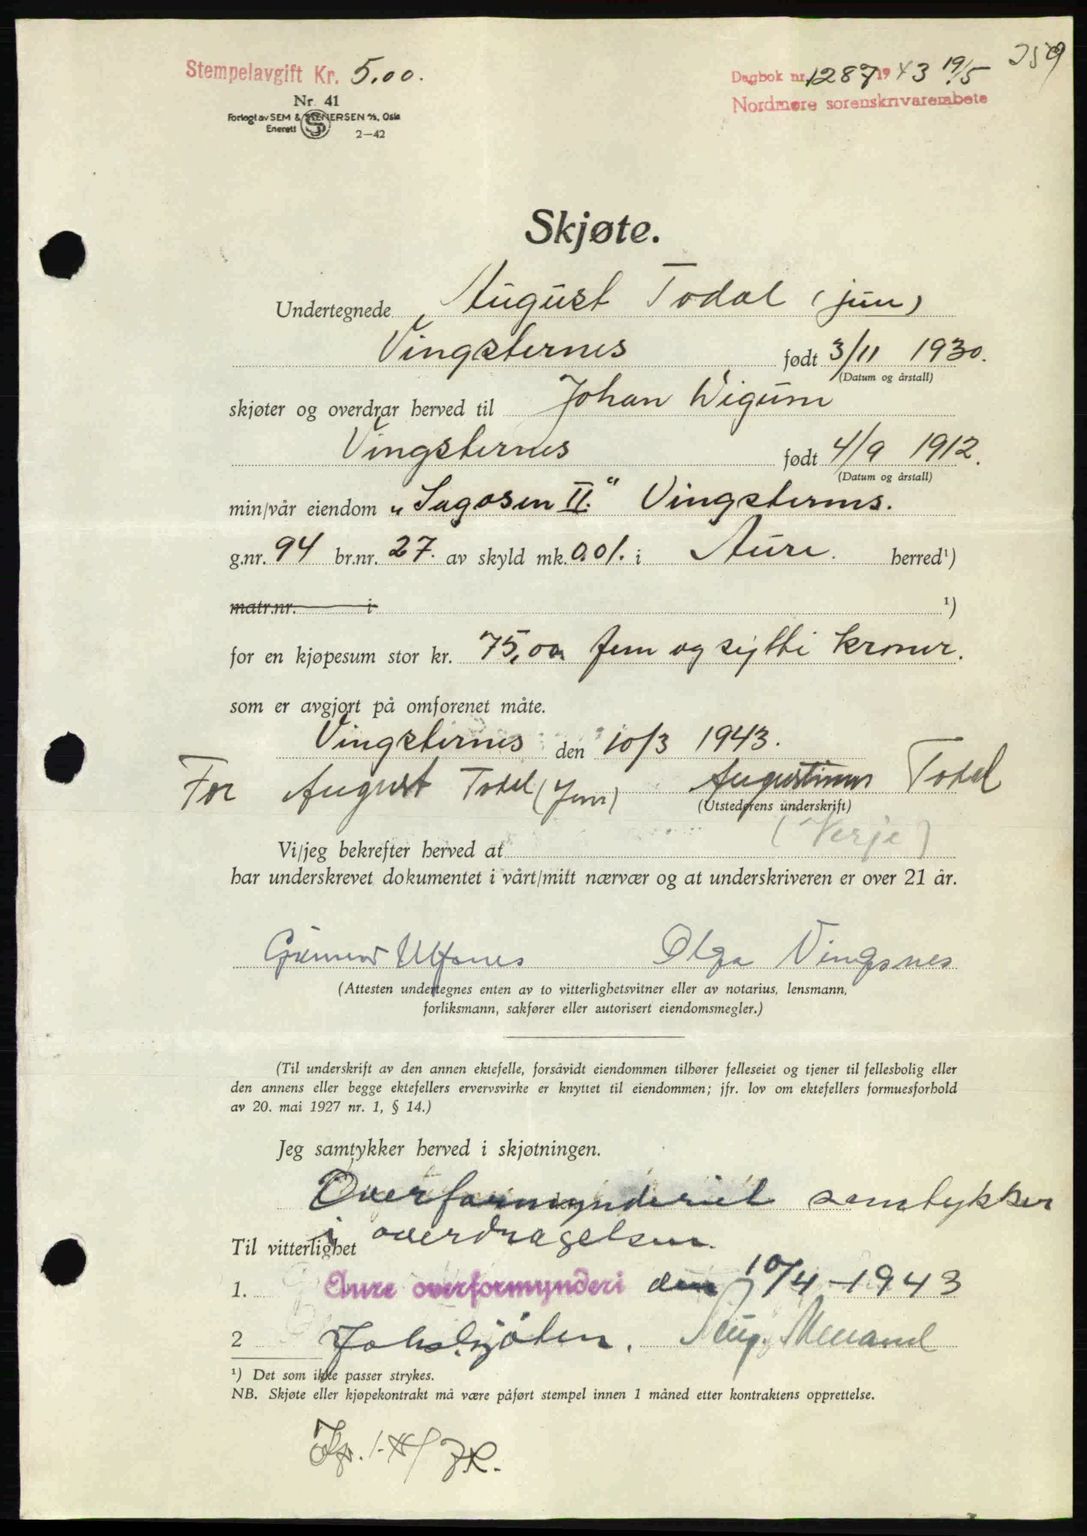 Stempelavgift Kr. 5,00.
Nr. 41
Forlagt av SEM & STENERSEN A/S, Oslo
Enerett
2-42
Dagbok nr. 1287 1943 19/5
Nordmøre sorenskriverembete
Skjøte.
Undertegnede August Todal (jun)
Vingsternes født 3/11 1930.
(Datum og årstall)
skjøter og overdrar herved til Johan Wigum
Vingsternes født 4/9 1912.
(Datum og årstall)
min/vår eiendom „Sagosen II." Vingsternes.
g.nr. 94 br.nr. 27. av skyld mk. 0.01. i Aure. herred¹)
matr.nr. i ¹)
for en kjøpesum stor kr. 75,00 fem og sytti kroner.
som er avgjort på omforenet måte.
Vingsternes den 10/3 1943.
For August Todal (Jun) Augustinus Todal
(Utstederens underskrift)
(Verje)
Vi/jeg bekrefter herved at
har underskrevet dokumentet i vårt/mitt nærvær og at underskriveren er over 21 år.
Gunnar Ulfsnes Olga Vingsnes
(Attesten undertegnes enten av to vitterlighetsvitner eller av notarius, lensmann,
forliksmann, sakfører eller autorisert eiendomsmegler.)
(Til underskrift av den annen ektefelle, forsåvidt eiendommen tilhører felleseiet og tjener til fellesbolig eller
den annens eller begge ektefellers ervervsvirke er knyttet til eiendommen; jfr. lov om ektefellers formuesforhold
av 20. mai 1927 nr. 1, § 14.)
Jeg samtykker herved i skjøtningen.
Overformynderiet samtykker
i overdragelsen.
Til vitterlighet
1. Aure overformynderi den 10/4-1943
2
¹) Det som ikke passer strykes.
NB. Skjøte eller kjøpekontrakt må være påført stempel innen 1 måned etter kontraktens opprettelse.